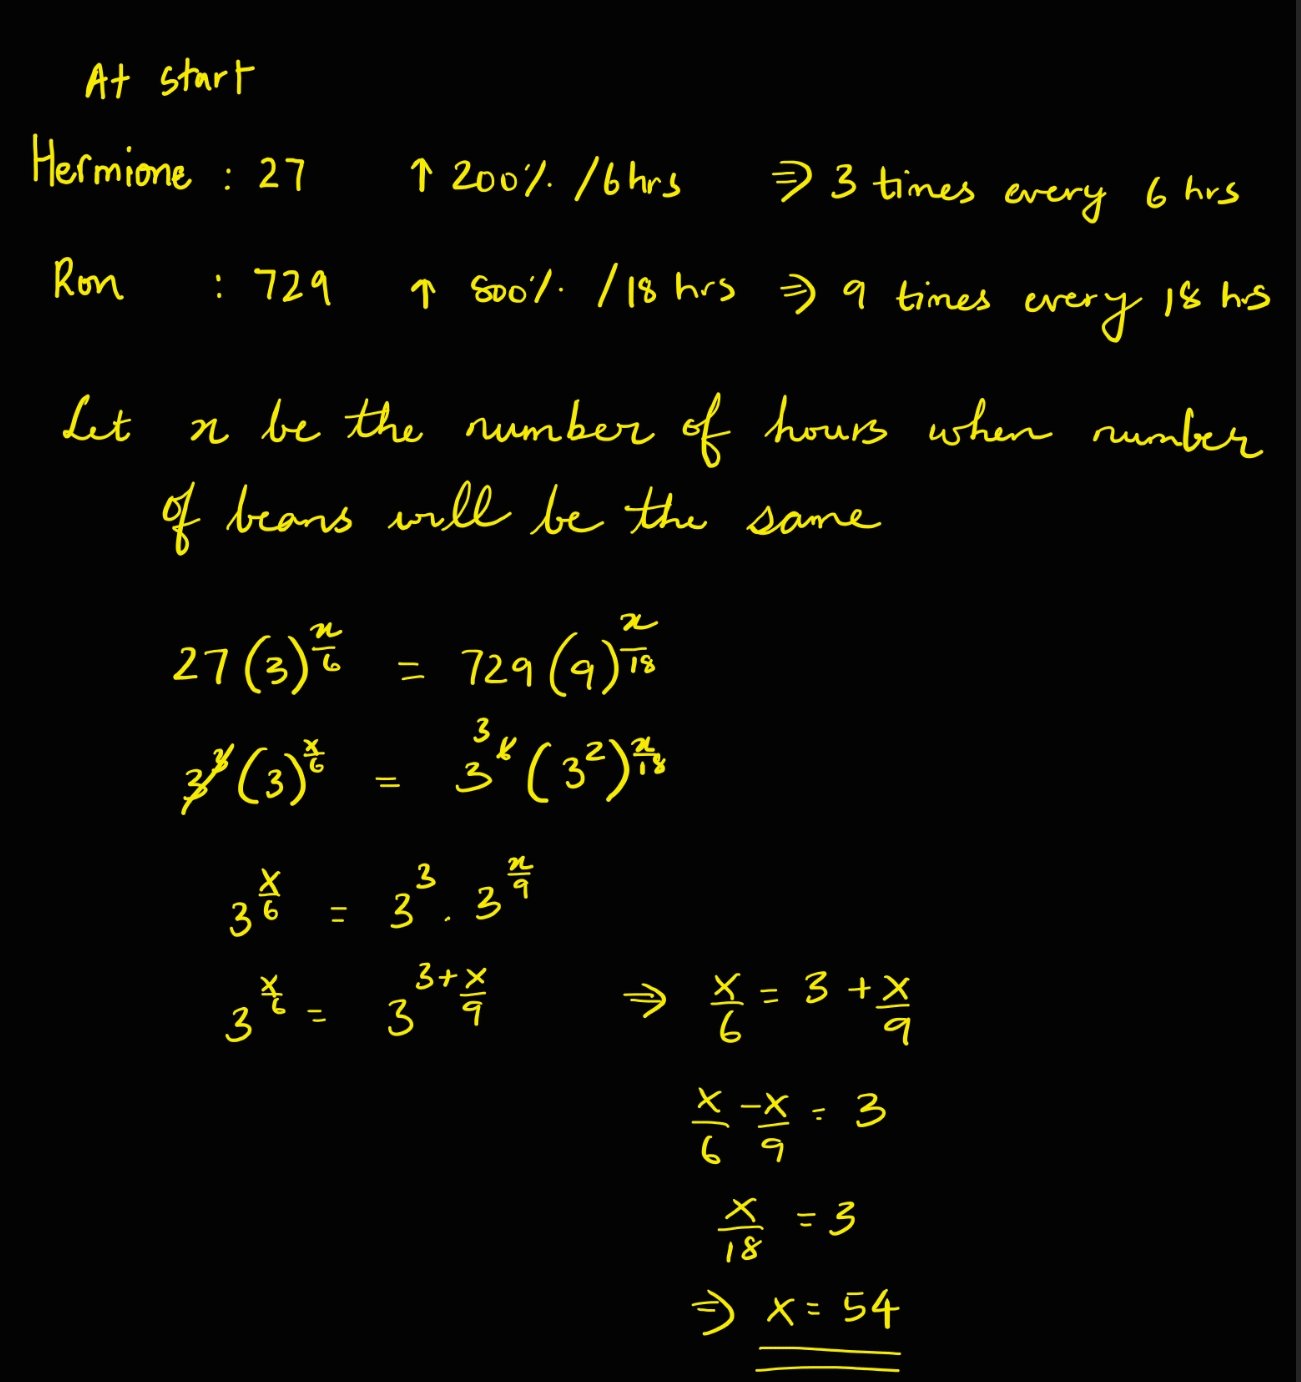 At start
Hermione : 27 ↑ 200% /6hrs ⇒ 3 times every 6 hrs
Ron : 729 ↑ 800% /18 hrs ⇒ 9 times every 18 hrs
Let x be the number of hours when number
of beans will be the same
27(3)^(x/6) = 729(9)^(x/18)
3^3(3)^(x/6) = 3^6 3 (3^2)^(x/18)
3^(x/6) = 3^3 . 3^(x/9)
3^(x/6) = 3^(3+x/9) ⇒ x/6 = 3 + x/9
x/6 - x/9 = 3
x/18 = 3
⇒ x = 54